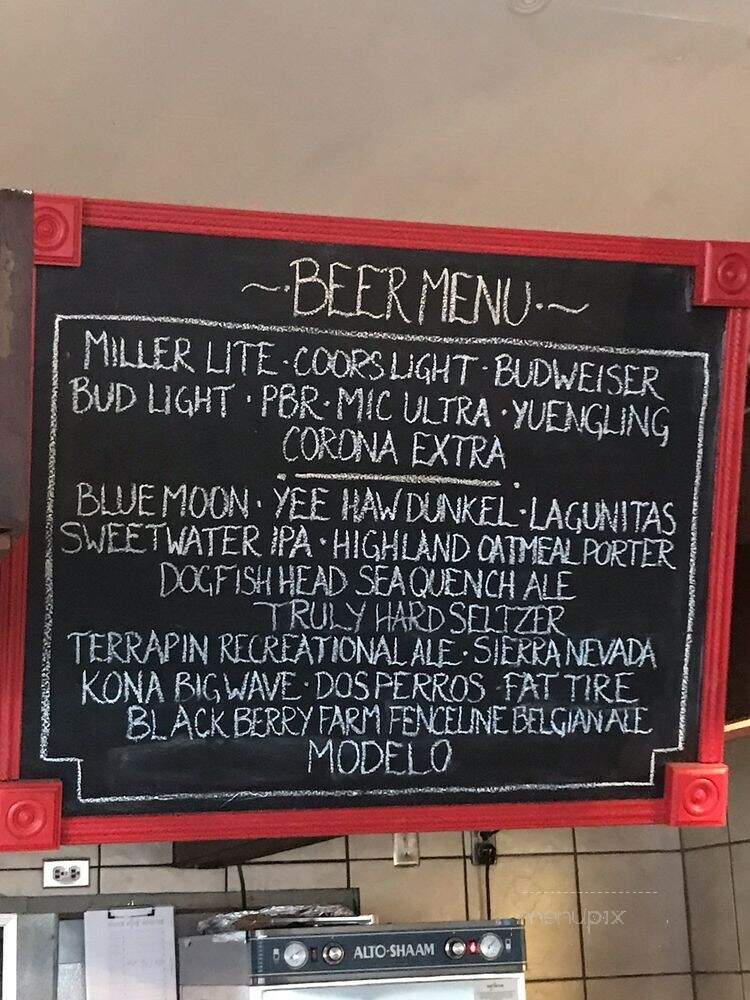 ~·BEER MENU·~
MILLER LITE · COORS LIGHT · BUDWEISER
BUD LIGHT · PBR · MIC ULTRA · YUENGLING
CORONA EXTRA
BLUE MOON · YEE HAW DUNKEL · LAGUNITAS
SWEETWATER IPA · HIGHLAND OATMEAL PORTER
DOGFISH HEAD SEA QUENCH ALE
TRULY HARD SELTZER
TERRAPIN RECREATIONAL ALE · SIERRA NEVADA
KONA BIG WAVE · DOS PERROS FAT TIRE
BLACKBERRY FARM FENCELINE BELGIAN ALE
MODELO
menupix
ALTO-SHAAM